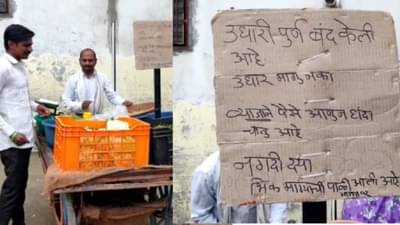 उधारी-पुर्ण बंद केली
आहे
उधार मागु नका
व्याजाने पैसे आणुन धंदा
करू आहे
नगदी द्या
भिक मागायची पाळी आली आहे